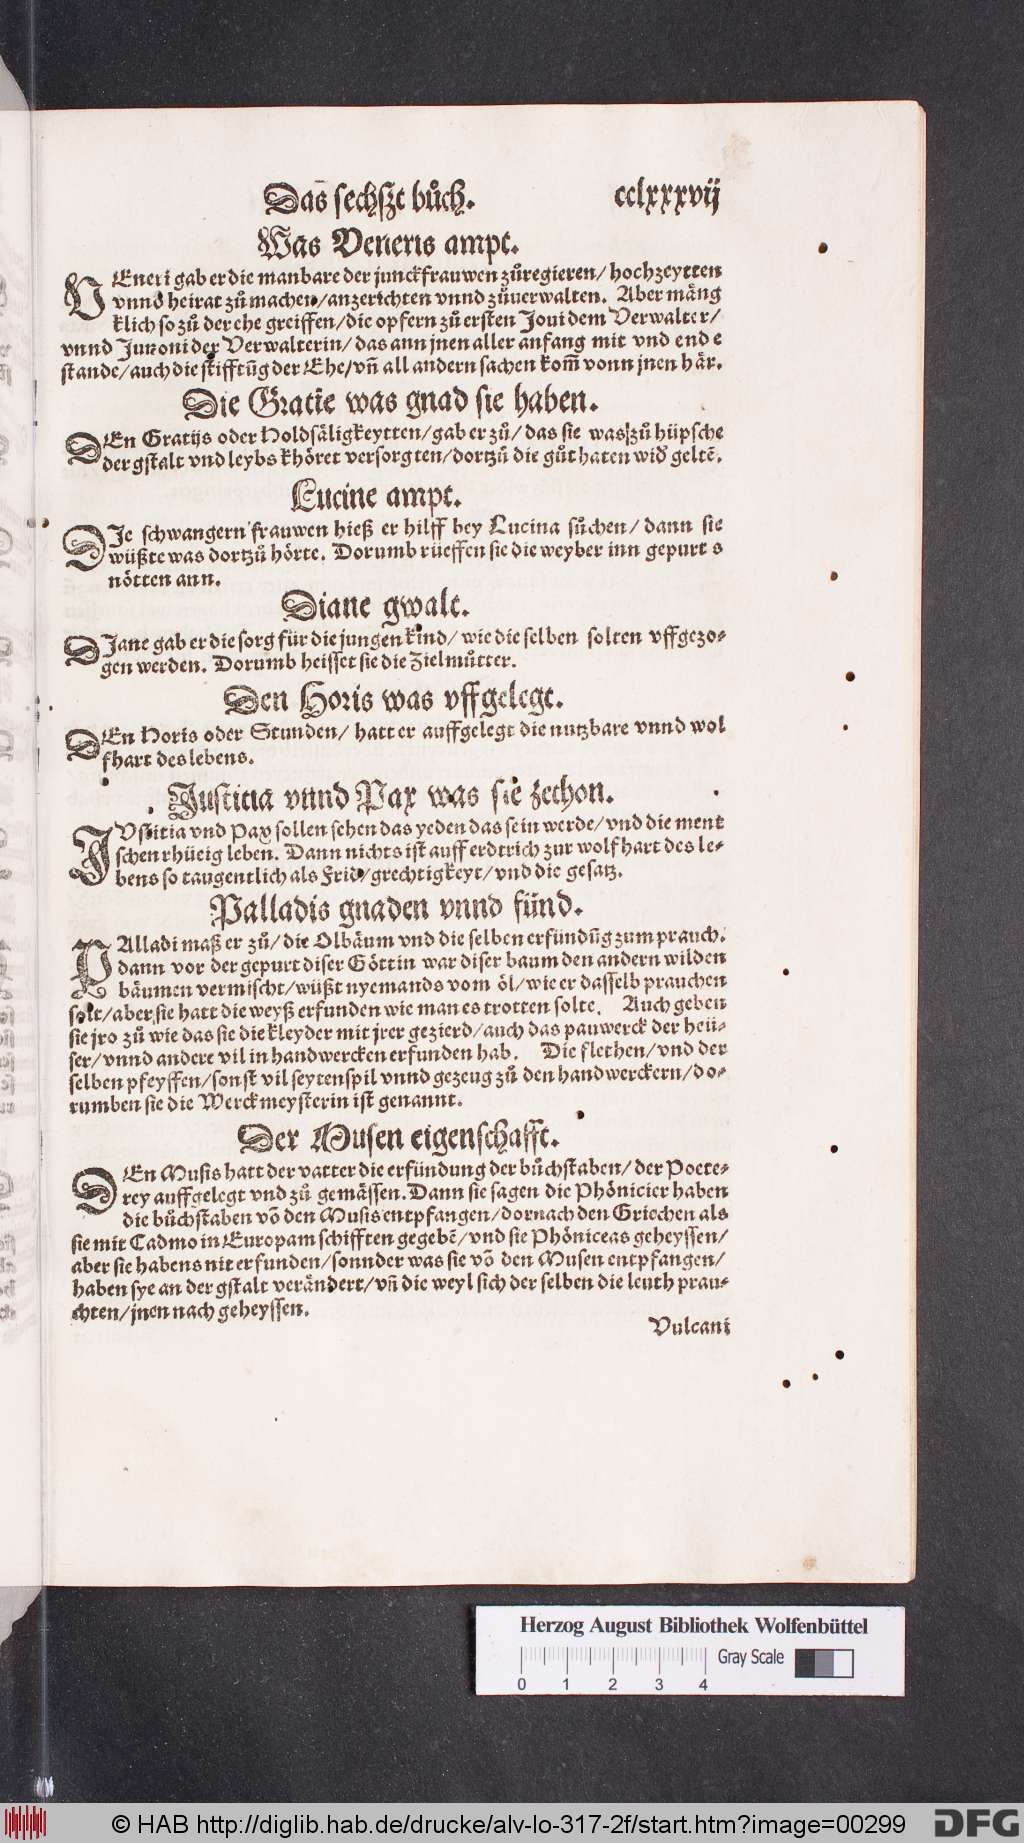 Das sechszt bůch. cclxxxvij
Was Veneris ampt.
VEneri gab er die manbare der junckfrauwen zůregieren/ hochzeytten
vnnd heirat zů machen/anzerichten vnnd zůuerwalten. Aber mäng
klich so zů der ehe greiffen/die opfern zů ersten Joui dem Verwalter/
vnnd Junoni der Verwalterin/das ann jnen aller anfang mit vnd end e
stande/auch die stifftūg der Ehe/vñ all andern sachen kom̃ vonn jnen här.
Die Gratie was gnad sie haben.
DEn Gratijs oder Holdsäligkeytten/gab er zů/ das sie was zů hüpsche
der gstalt vnd leybs khöret versorgten/dortzů die gůt haten wid̛ geltē.
Lucine ampt.
DIe schwangern frauwen hieß er hilff bey Lucina sůchen/ dann sie
wüßte was dortzů hörte. Dorumb rüeffen sie die weyber inn gepurt s
nötten ann.
Diane gwalt.
DJane gab er die sorg für die jungen kind/ wie die selben solten vffgezo-
gen werden. Dorumb heisset sie die Zielmůtter.
Den Horis was vffgelegt.
DEn Horis oder Stunden/ hatt er auffgelegt die nutzbare vnnd wol
fhart des lebens.
Justitia vnnd Pax was sie zethon.
JVstitia vnd Pax sollen sehen das yeden das sein werde/vnd die ment
schen rhüeig leben. Dann nichts ist auff erdtrich zur wolfhart des le-
bens so taugentlich als Frid/grechtigkeyt/vnd die gesatz.
Palladis gnaden vnnd fünd.
PAlladi maß er zů/die Olbäum vnd die selben erfundūg zum prauch.
dann vor der gepurt diser Göttin war diser baum den andern wilden
bäumen vermischt/wüßt nyemands vom öl/wie er dasselb prauchen
solt/aber sie hatt die weyß erfunden wie man es trotten solte. Auch geben
sie jro zů wie das sie die kleyder mit jrer gezierd/auch das pauwerck der heü-
ser/vnnd andere vil in handwercken erfunden hab. Die flethen/vnd der
selben pfeyffen/sonst vil seytenspil vnnd gezeug zů den handwerckern/do-
rumben sie die Werckmeysterin ist genannt.
Der Musen eigenschafft.
DEn Musis hatt der vatter die erfündung der bůchstaben/der Poete-
rey auffgelegt vnd zů gemässen. Dann sie sagen die Phönicier haben
die bůchstaben võ den Musis entpfangen/dornach den Griechen als
sie mit Cadmo in Europam schifften gegebē/vnd sie Phöniceas geheyssen/
aber sie habens nit erfunden/sonnder was sie võ den Musen entpfangen/
haben sye an der gstalt verändert/vñ die weyl sich der selben die leuth prau-
chten/jnen nach geheyssen.
Vulcani
Herzog August Bibliothek Wolfenbüttel
0 1 2 3 4 Gray Scale
© HAB http://diglib.hab.de/drucke/alv-lo-317-2f/start.htm?image=00299 DFG